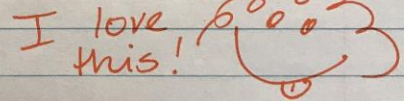 I love
this!